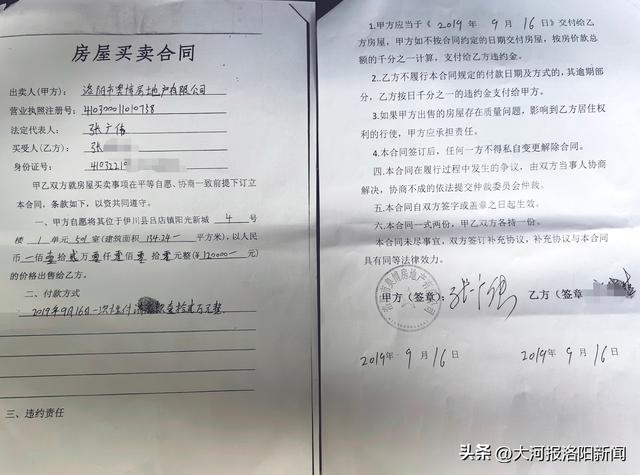 房屋买卖合同
出卖人(甲方): 洛阳市 房地产有限公司
营业执照注册号: 410300011010758
法定代表人: 张广伟
买受人(乙方): 张
身份证号: 4103221
甲乙双方就房屋买卖事项在平等自愿、协商一致前提下订立
本合同,条款如下,以资共同遵守。
一、甲方自愿将其位于伊川县吕店镇阳光新城 4 号
楼 1 单元 501 室(建筑面积 134.24 平方米),以人民
币 佰 拾贰万 仟 佰 拾 元整(¥120000 元)
的价格出售给乙方。
二、付款方式
2019年9月16日一次支付 拾贰万元整
三、违约责任
1.甲方应当于《 2019 年 9 月 16 日》交付给乙
方房屋,甲方如不按合同约定的日期交付房屋,按房价款总
额的千分之一计算,支付给乙方违约金。
2.乙方不履行本合同规定的付款日期及方式的,其逾期部
分,乙方按日千分之一的违约金支付给甲方。
3.如果甲方出售的房屋存在质量问题,影响到乙方居住权
利的行使,甲方应承担责任。
4.本合同签订后,任何一方不得私自变更解除合同。
四.本合同在履行过程中发生的争议,由双方当事人协商
解决,协商不成的依法提交仲裁委员会仲裁。
五.本合同自双方签字或盖章之日起生效。
六.本合同一式两份,甲乙双方各持一份。
本合同未尽事宜,双方签订补充协议,补充协议与本合同
具有同等法律效力。
甲方(签章): 张广伟 乙方(签章
2019年 9 月 16 日 2019 年 9 月 16 日
头条 @大河报洛阳新闻